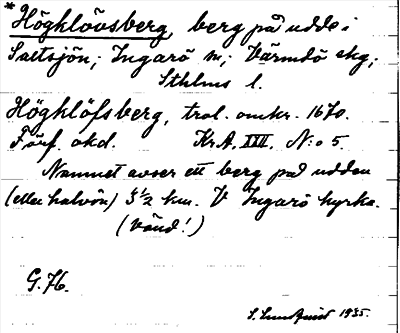 * Högklövsberg, berg på udde i
Saltsjön; Ingarö sn; Värmdö skg;
Sthlms l.
Högklöfsberg, trol. omkr. 1670.
Förf. okd. Kr.A, XXII, N:o 5.
Namnet avser ett berg på udden
(eller halvön) 5 1/2 km. V Ingarö kyrka.
(Vänd!)
G. 76.
S. Lundquist 1935.